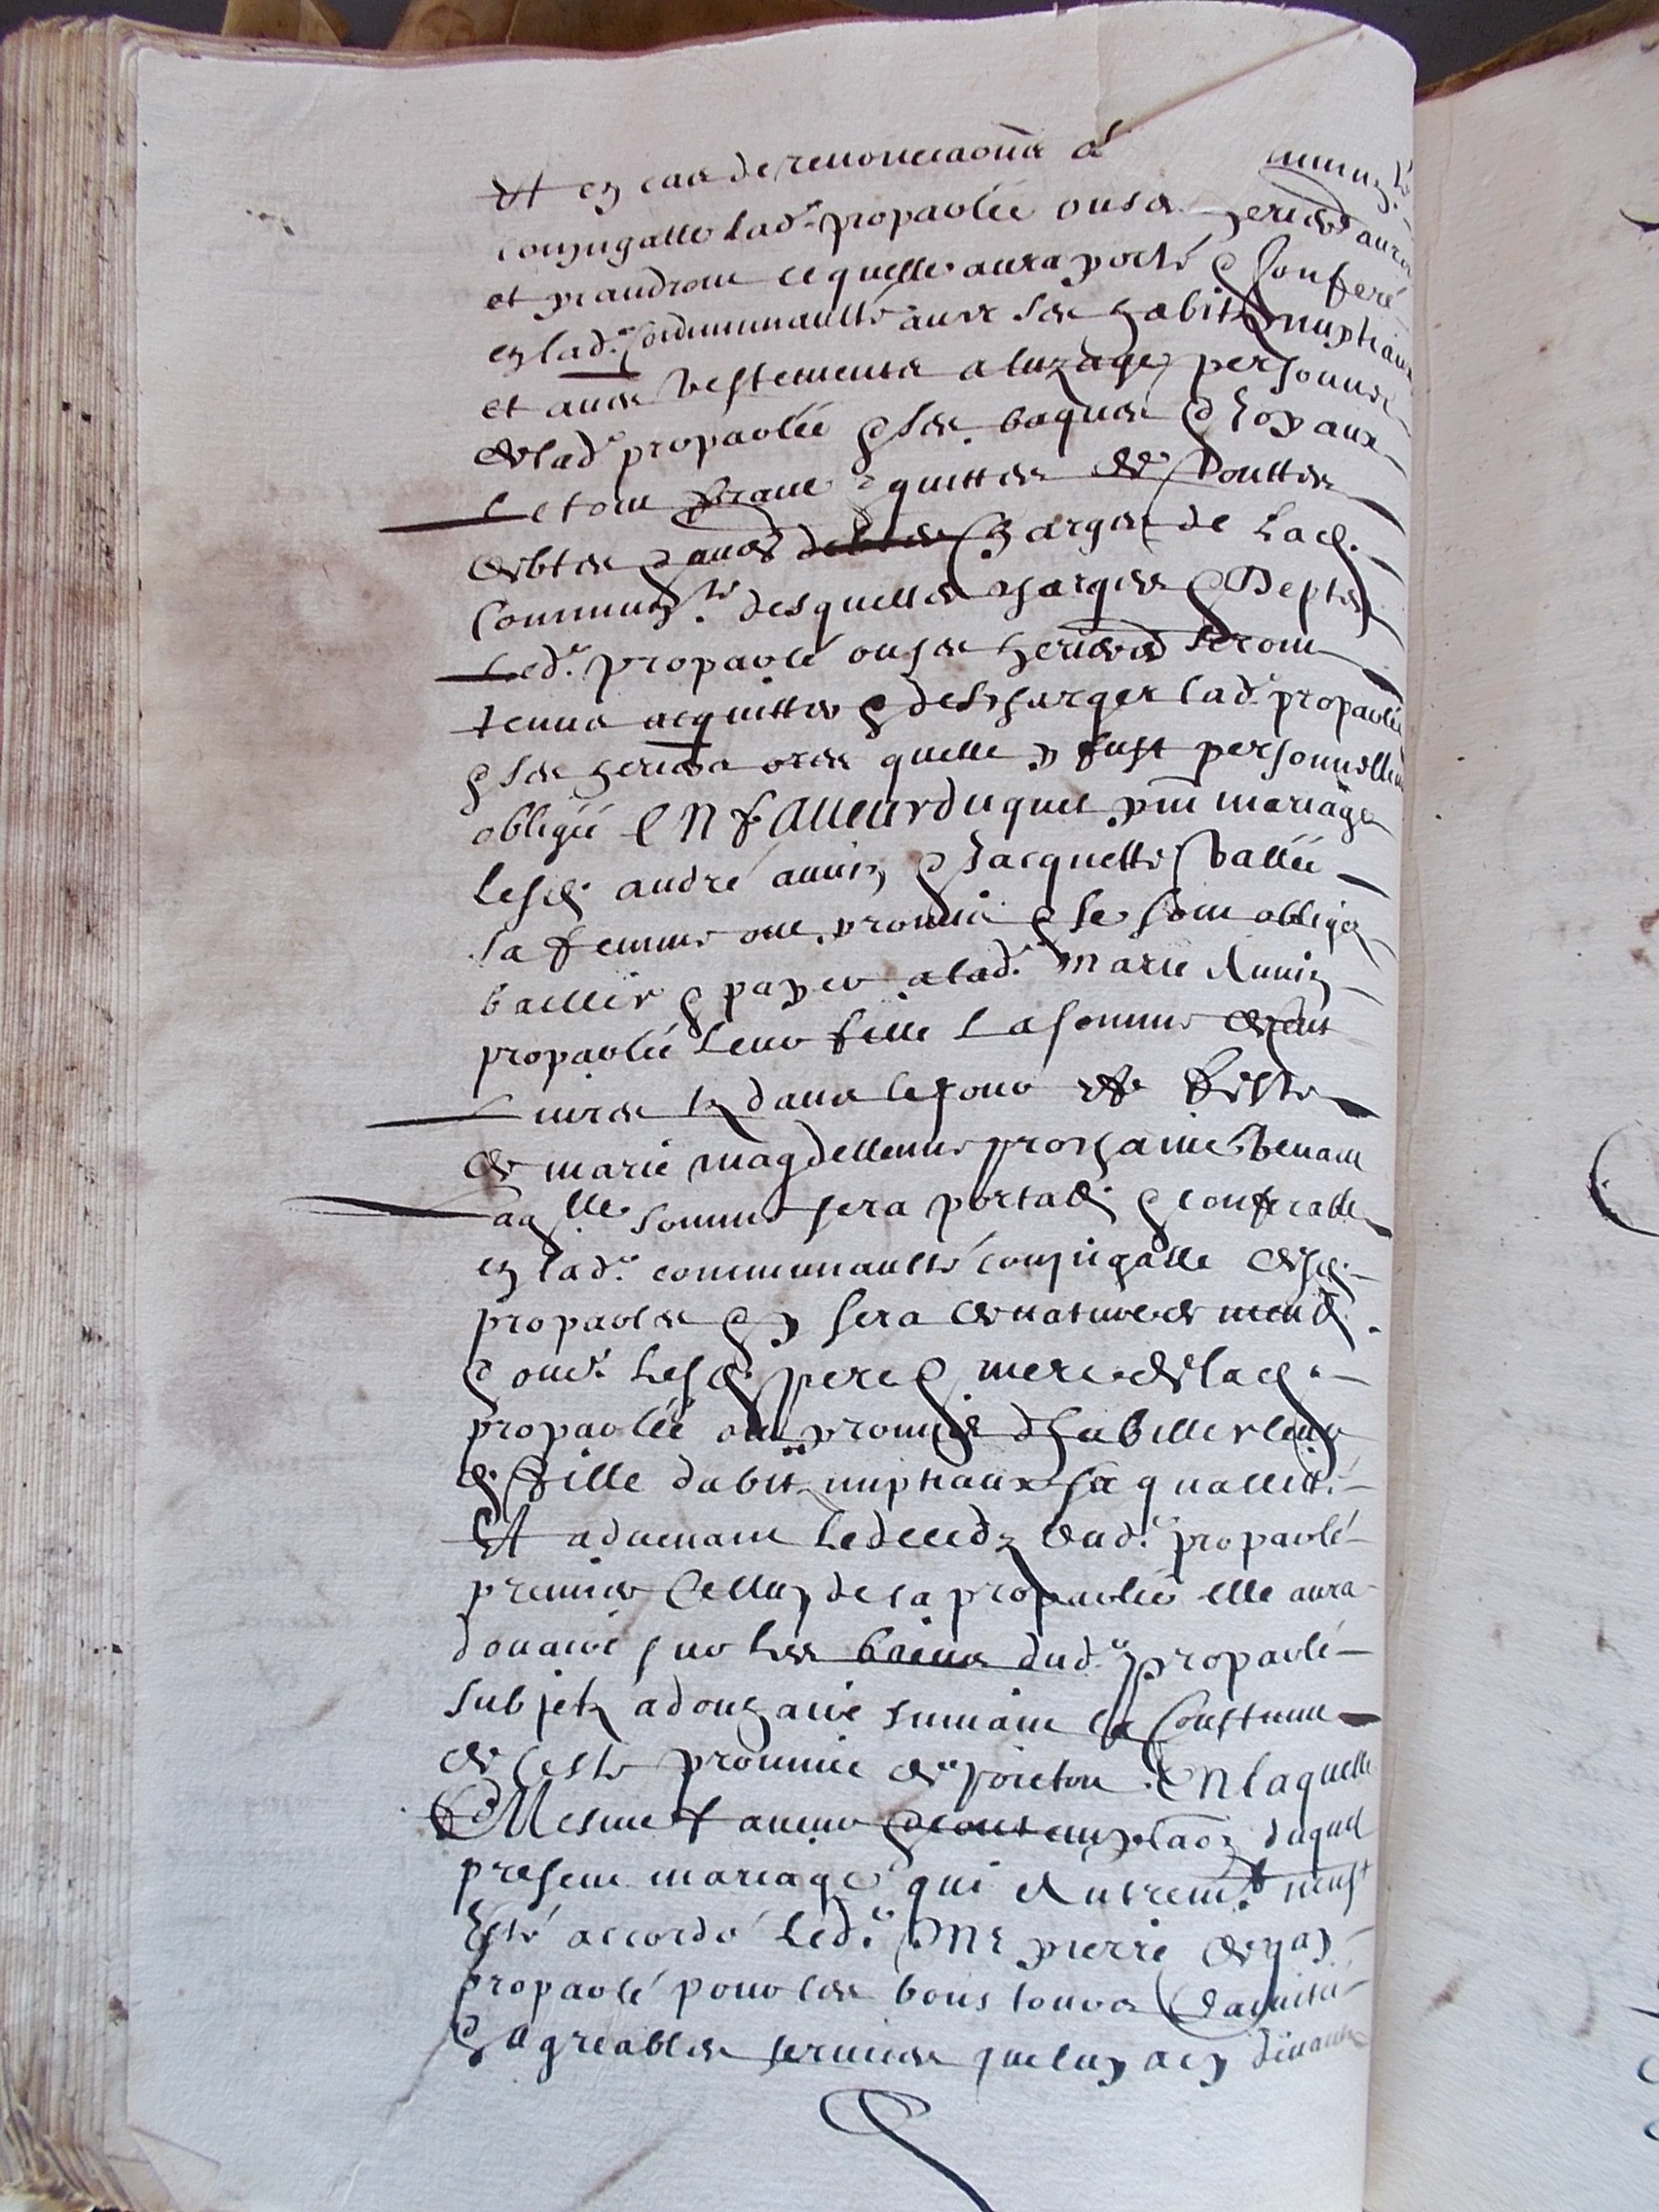 Et en cas de renonciaõn a
conjugalle lad.e proparlée ou ses heriers auro
et prandront ce quelle aura porté & conferé
en lad.e communaulté avec ses habitz nuptiaux
et aues vestements a luzage personne
de lad.e proparlée & ses bagues & Joyaux
Le tout franc & quitte de touttes
debtes & aues charges de lad.
Commun.té desquelles charges & Deptes
Led.t proparlé ou ses heriers seront
tenus acquitter & descharger lad.e proparlée
& ses heriers ores quelle y fust personnelle
obligée EN faveur duquel pnt mariage
Lesd. andré aunin & Jacquette Vallée
sa femme ont promis & se sont obligez
bailler & payer a lad.e Marie Aunin
proparlée leur fille La somme de cent
Livres tz dans le jour & feste
de marie magdellenne prochaine venant
Laq.lle somme sera portable & conferable
en lad.e communaulté conjugalle desd.
proparles & y sera de nature de meuble
& oult. Lesd. pere & mere de lad.
proparlée ont promis dhabiller leur
d. fille dabitz nuptiaux sa quallité
Et advenant le decedz dud.t proparlé
premier Celluy de la proparlée elle aura
douaire sur les biens dud.t proparlé
subjetz a douhaire suivant la Coustume
de ceste province de poictou. EN laquelle
Mesme faueur & contemplaõn duquel
present mariage qui Autrem.t neust
Esté accordé Led.t Me pierre
proparlé pour les bons tours damitié
& Agreables services que luy a cy devant